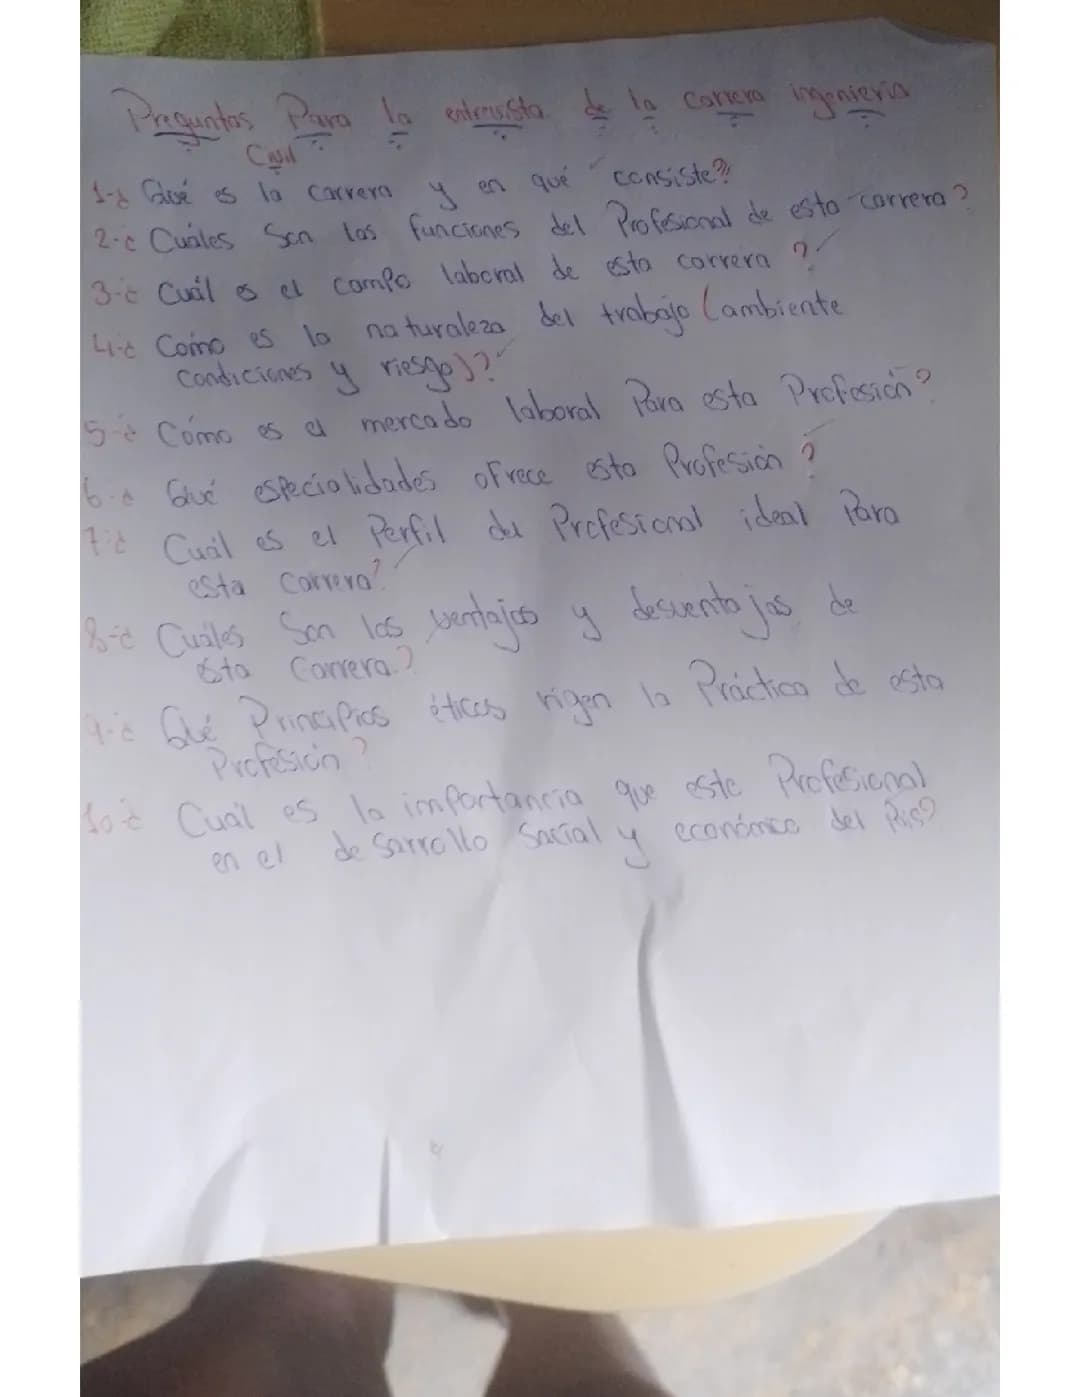 Preguntas Para la entrevista de la carrera ingenieria
Civil
1-¿ Qué es la carrera y en qué consiste?
2-¿ Cuáles Son las funciones del Profesional de esta carrera?
3-¿ Cuál es el campo laboral de esta carrera?
4-¿ Cómo es la naturaleza del trabajo (ambiente
Condiciones y riesgo)?
5-¿ Cómo es el mercado laboral Para esta Profesión?
6-¿ Qué especialidades ofrece esta Profesión?
7-¿ Cuál es el Perfil del Profesional ideal Para
esta Carrera?
8-¿ Cuáles Son las ventajas y desventajas de
esta Carrera?
9-¿ Qué Principios éticos rigen la Práctica de esta
Profesión?
10-¿ Cuál es la importancia que este Profesional
en el desarrollo Social y económico del País?